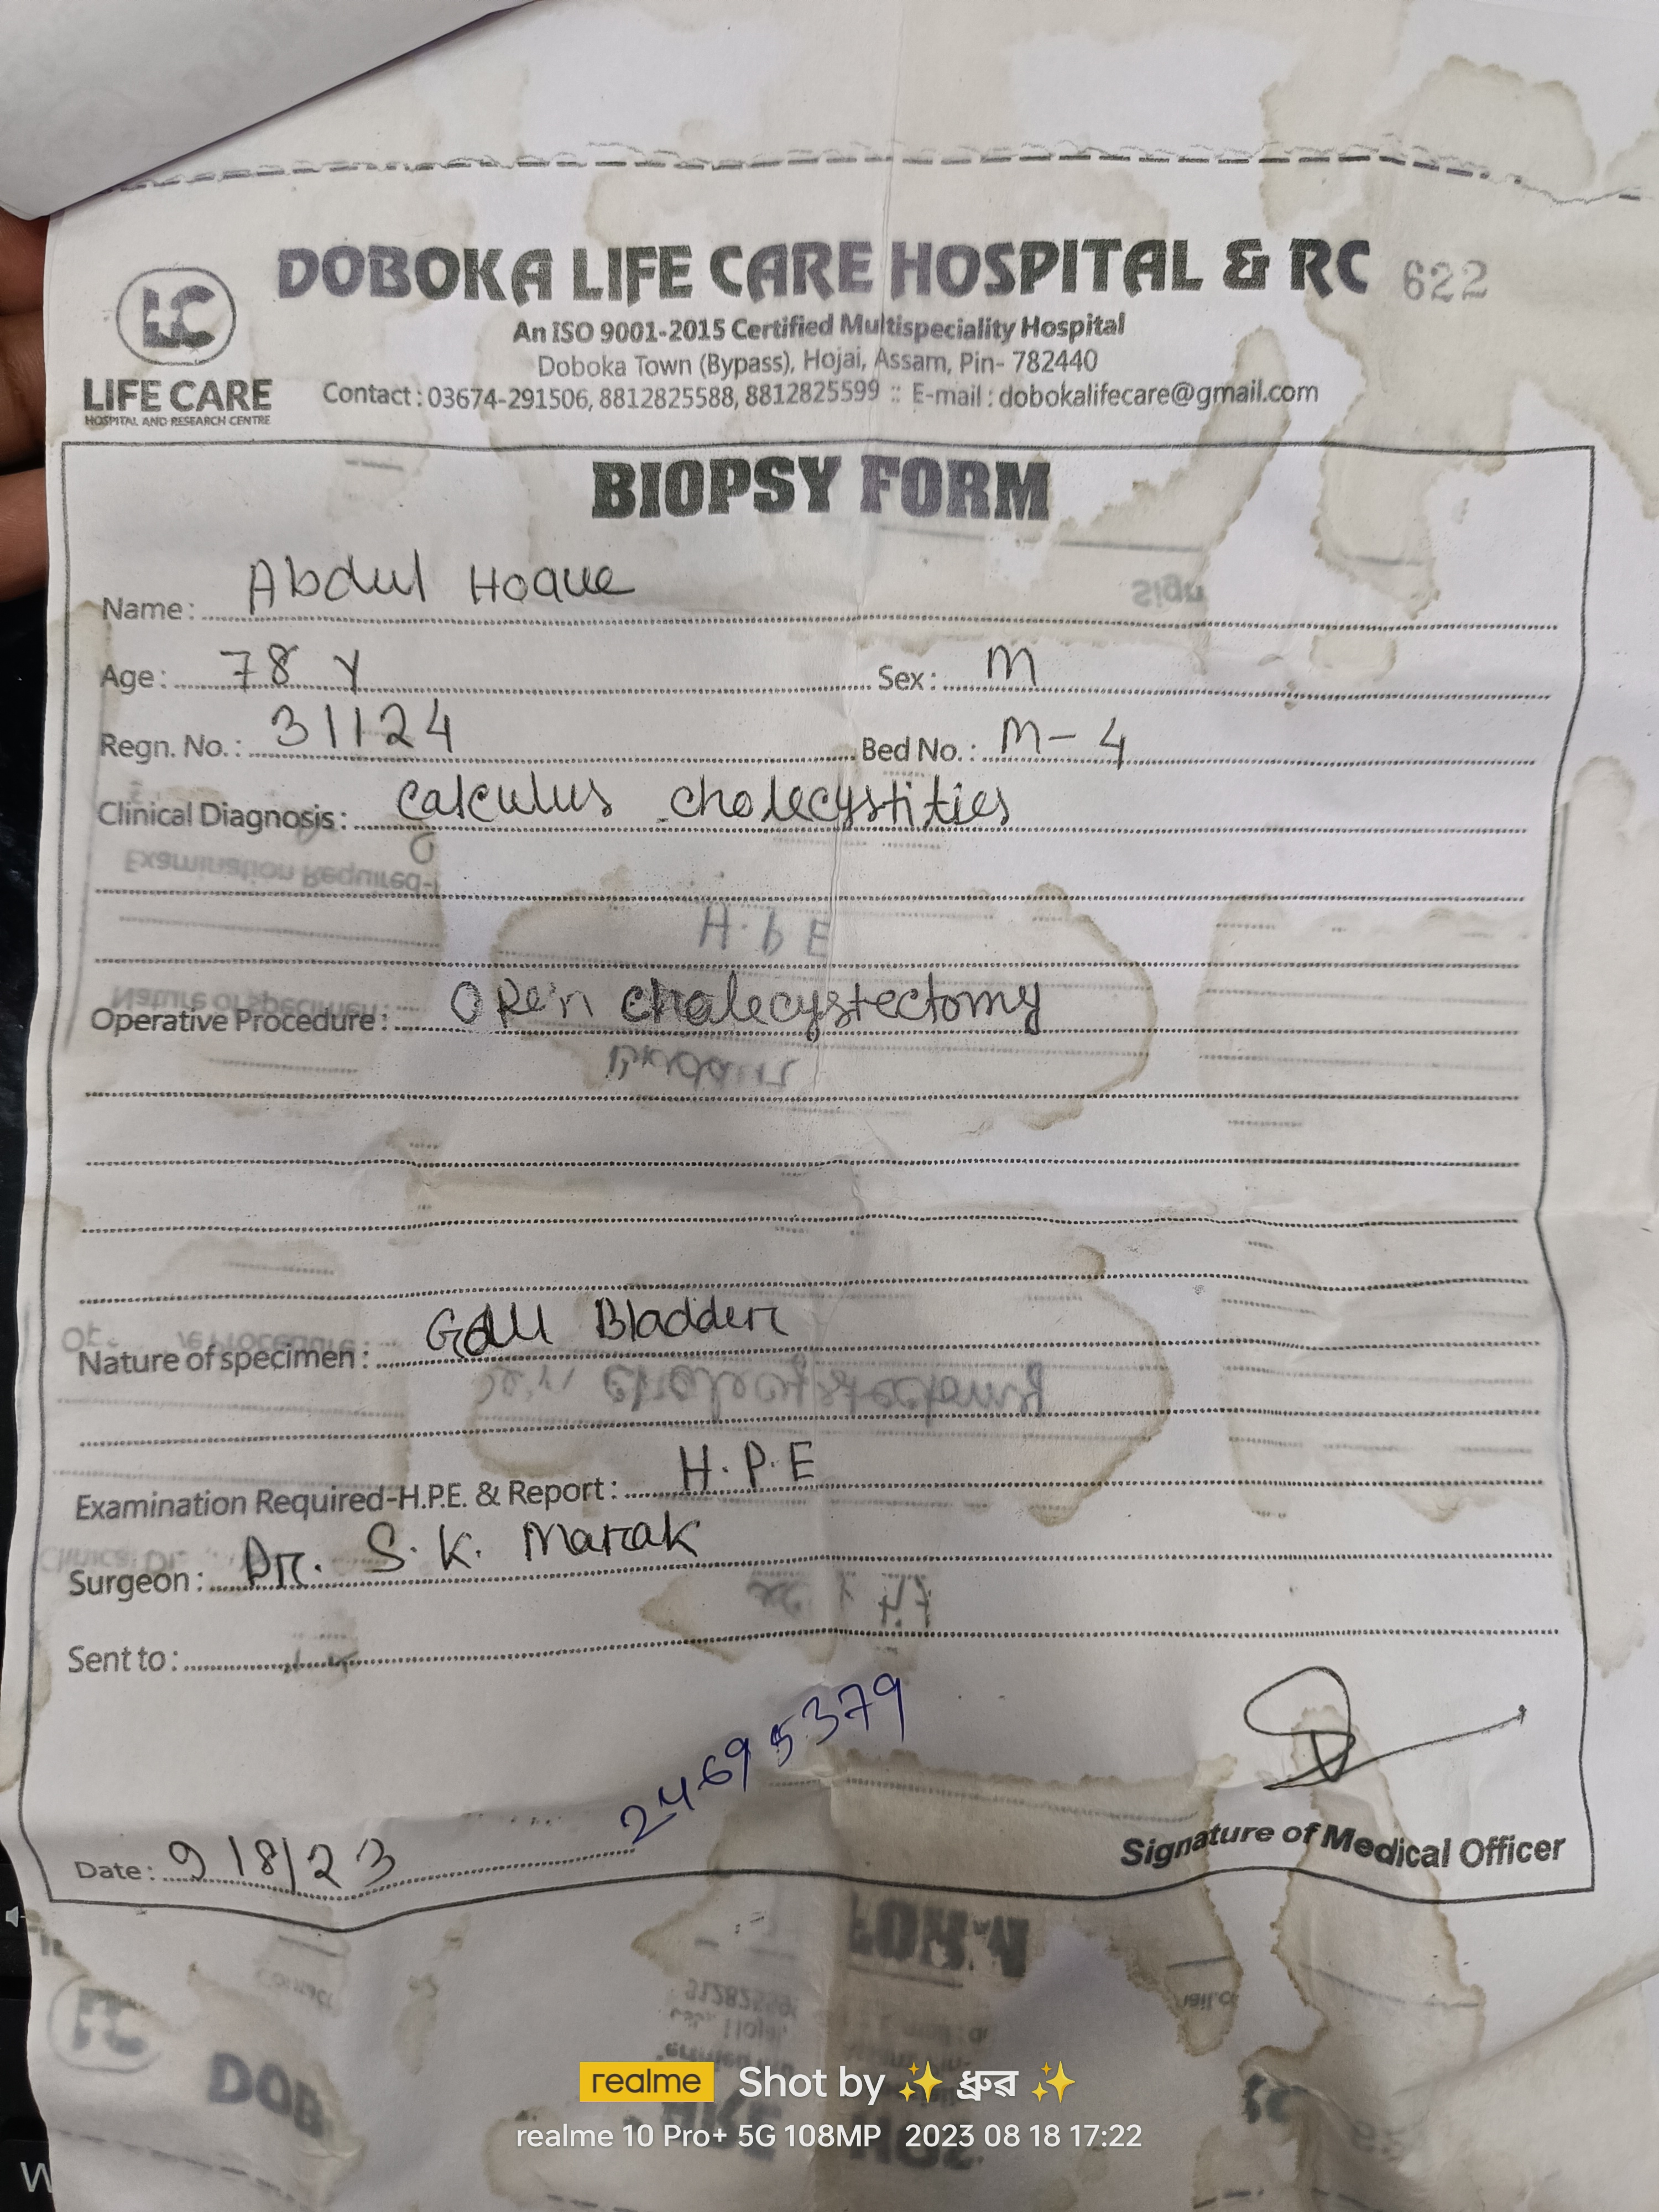 DOBOKA LIFE CARE HOSPITAL & RC 622
An ISO 9001-2015 Certified Multispeciality Hospital
Doboka Town (Bypass), Hojai, Assam, Pin- 782440
Contact : 03674-291506, 8812825588, 8812825599 :: E-mail : dobokalifecare@gmail.com
LC
LIFE CARE
HOSPITAL AND RESEARCH CENTRE
BIOPSY FORM
Name : Abdul Hoque
Age : 78 Y Sex : M
Regn. No. : 31124 Bed No. : M-4
Clinical Diagnosis : Calculus cholecystities
Operative Procedure : Open cholecystectomy
Nature of specimen : Gall Bladder
Examination Required-H.P.E. & Report : H.P.E
Surgeon : Dr. S. K. Marak
Sent to :
24695379
Date : 9/8/23
Signature of Medical Officer
realme Shot by ✨ ধ্রুৱ ✨
realme 10 Pro+ 5G 108MP 2023 08 18 17:22